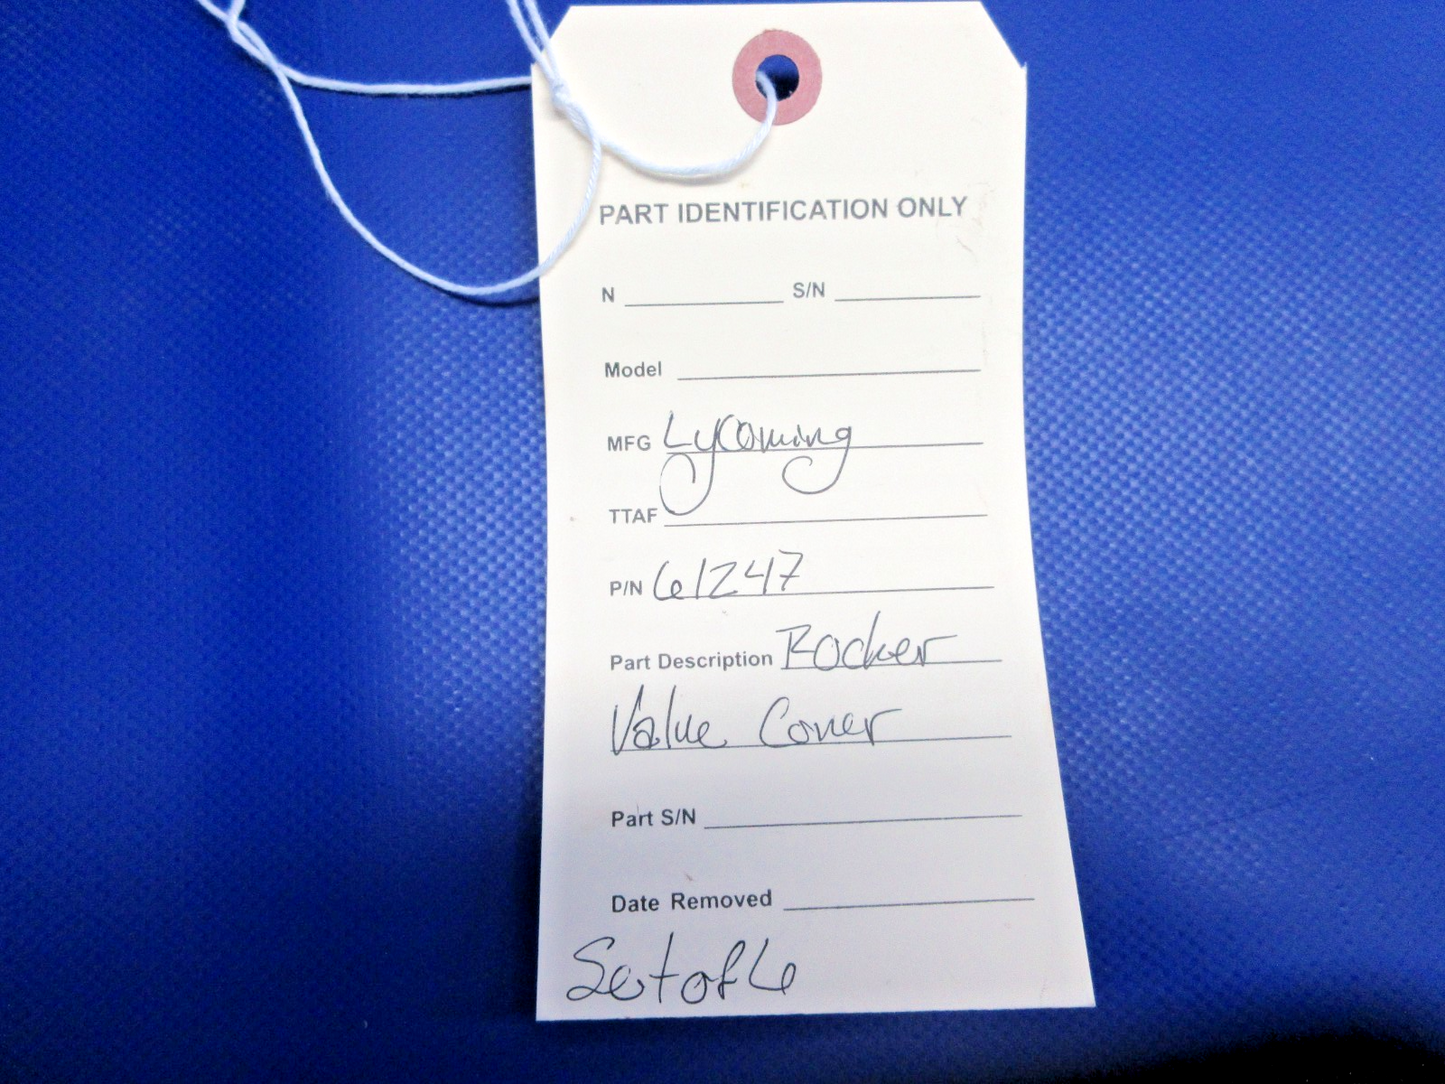 PART IDENTIFICATION ONLY
N S/N
Model
MFG Lycoming
TTAF
P/N 61247
Part Description Rocker
Valve Cover
Part S/N
Date Removed
Set of 6